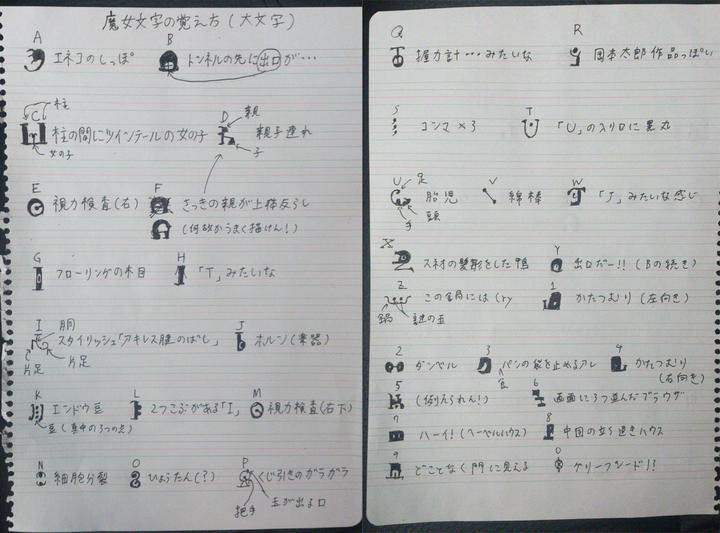 魔女文字の覚え方(大文字)
A エネコのしっぽ
B トンネルの先に出口が…
C 柱
柱の間にツインテールの女の子
女の子
D 親
親子連れ
子
E 視力検査(右)
F さっきの親が上体反らし
(何故かうまく描けん!)
G フローリングの木目
H 「T」みたいな
I 胴
スタイリッシュ「アキレス腱のばし」
片足 片足
J ホルン(楽器)
K エンドウ豆
豆(真中の3つの点)
L 2つこぶがある「I」
M 視力検査(右下)
N 細胞分裂
O ひょうたん(?)
P くじ引きのガラガラ
玉が出る口
把手
Q 握力計…みたいな
R 岡本太郎作品っぽい
S コンマ×3
T 「U」の入り口に黒丸
U 足
胎児
頭
手
V 綿棒
W 「J」みたいな感じ
X スネ村の髪形をした鴨
Y 出口だー!!(Bの続き)
Z この鍋には(ry
鍋 謎の玉
1 かたつむり(左向き)
2 ダンベル
3 パンの袋を止めるアレ
4 かたつむり
(右向き)
5 (例えられん!)
6 画面に3つ並んだブラウザ
7 ハーイ!(ヘーベルハウス)
8 中国の立ち退きハウス
9 どことなく門に見える
0 グリーフシード!!